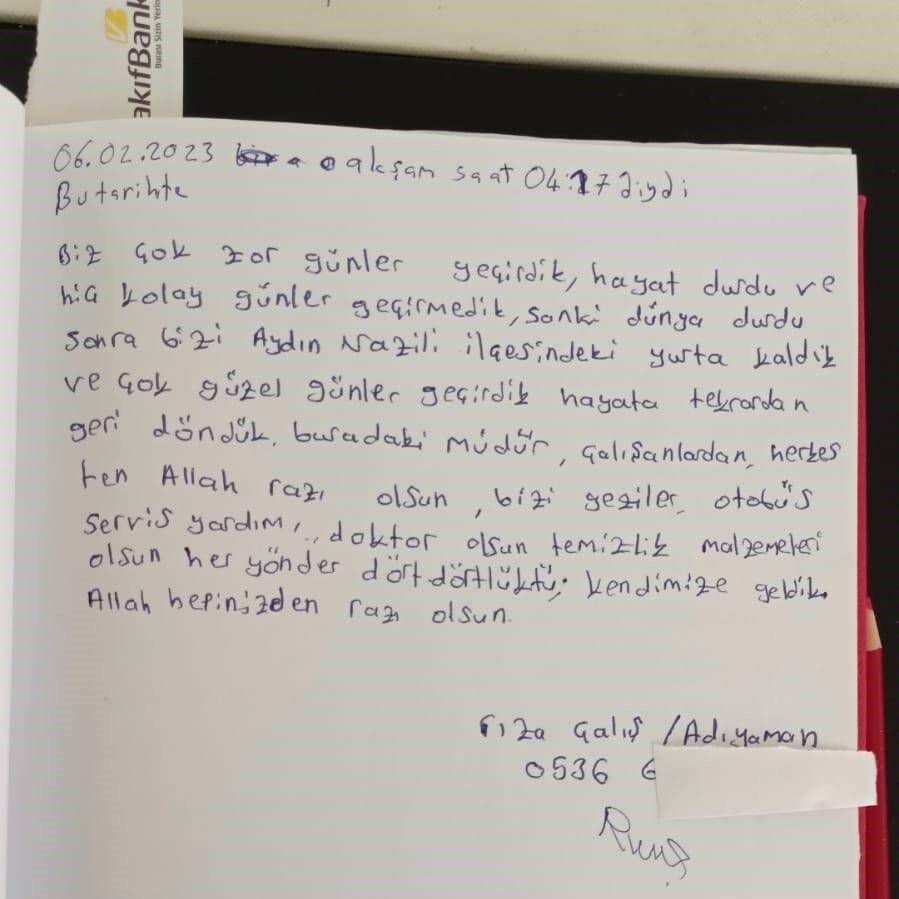 akıfBank
Burası Sizin Yerin
06.02.2023 o akşam saat 04:17 diydi
Bu tarihte
Biz çok zor günler geçirdik, hayat durdu ve
hiç kolay günler geçirmedik, sanki dünya durdu
sonra bizi Aydın Nazili ilçesindeki yurta kaldık
ve çok güzel günler geçirdik hayata tekrardan
geri döndük, buradaki müdür, çalışanlardan, herkes
ten Allah razı olsun, bizi geziler, otobüs
servis yardım, doktor olsun temizlik malzemeleri
olsun her yönder dört dörtlüktü; kendimize geldik.
Allah hepinizden razı olsun.
rıza Çalış /Adıyaman
0536 6